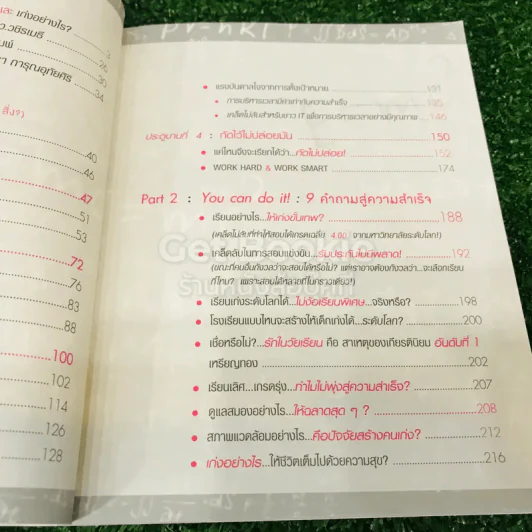 และ เก่งอย่างไร?
ว.วชิรเมธี
26
30
34
สิ่ง?)
40
46
47
51
53
72
76
83
88
100
102
114
126
128
แรงบันดาลใจจากการตั้งเป้าหมาย 131
การบริหารเวลามีค่าเท่ากับความสำเร็จ 135
เคล็ดไม่ลับสำหรับชาว IT เพื่อการบริหารเวลาอย่างมีคุณภาพ 146
ประตูบานที่ 4 : กัดไว้ไม่ปล่อยมัน 150
แค่ไหนจึงจะเรียกได้ว่า...กัดไม่ปล่อย! 152
WORK HARD & WORK SMART 174
Part 2 : You can do it! : 9 คำถามสู่ความสำเร็จ
เรียนอย่างไร...ให้เก่งขั้นเทพ? 188
(เคล็ดไม่ลับที่ทำให้สอบได้เกรดเฉลี่ย 4.00 จากมหาวิทยาลัยระดับโลก!)
เคล็ดลับในการสอบแข่งขัน...รับประกันไม่มีพลาด! 192
(ขณะที่คนอื่นกังวลว่าจะสอบได้หรือไม่? แต่เราอาจต้องกังวลว่า...จะเลือกเรียน
ที่ไหน? เพราะสอบได้หลายที่ในคราวเดียว!)
เรียนเก่งระดับโลกได้...ไม่ง้อเรียนพิเศษ...จริงหรือ? 198
โรงเรียนแบบไหนจะสร้างให้เด็กเก่งได้...ระดับโลก? 200
เชื่อหรือไม่?...รักในวัยเรียน คือ สาเหตุของเกียรตินิยม อันดับที่ 1
เหรียญทอง 202
เรียนเลิศ...เกรดรุ่ง...ทำไมไม่พุ่งสู่ความสำเร็จ? 207
ดูแลสมองอย่างไร...ให้ฉลาดสุด ๆ ? 208
สภาพแวดล้อมอย่างไร...คือปัจจัยสร้างคนเก่ง? 212
เก่งอย่างไร...ให้ชีวิตเต็มไปด้วยความสุข? 216